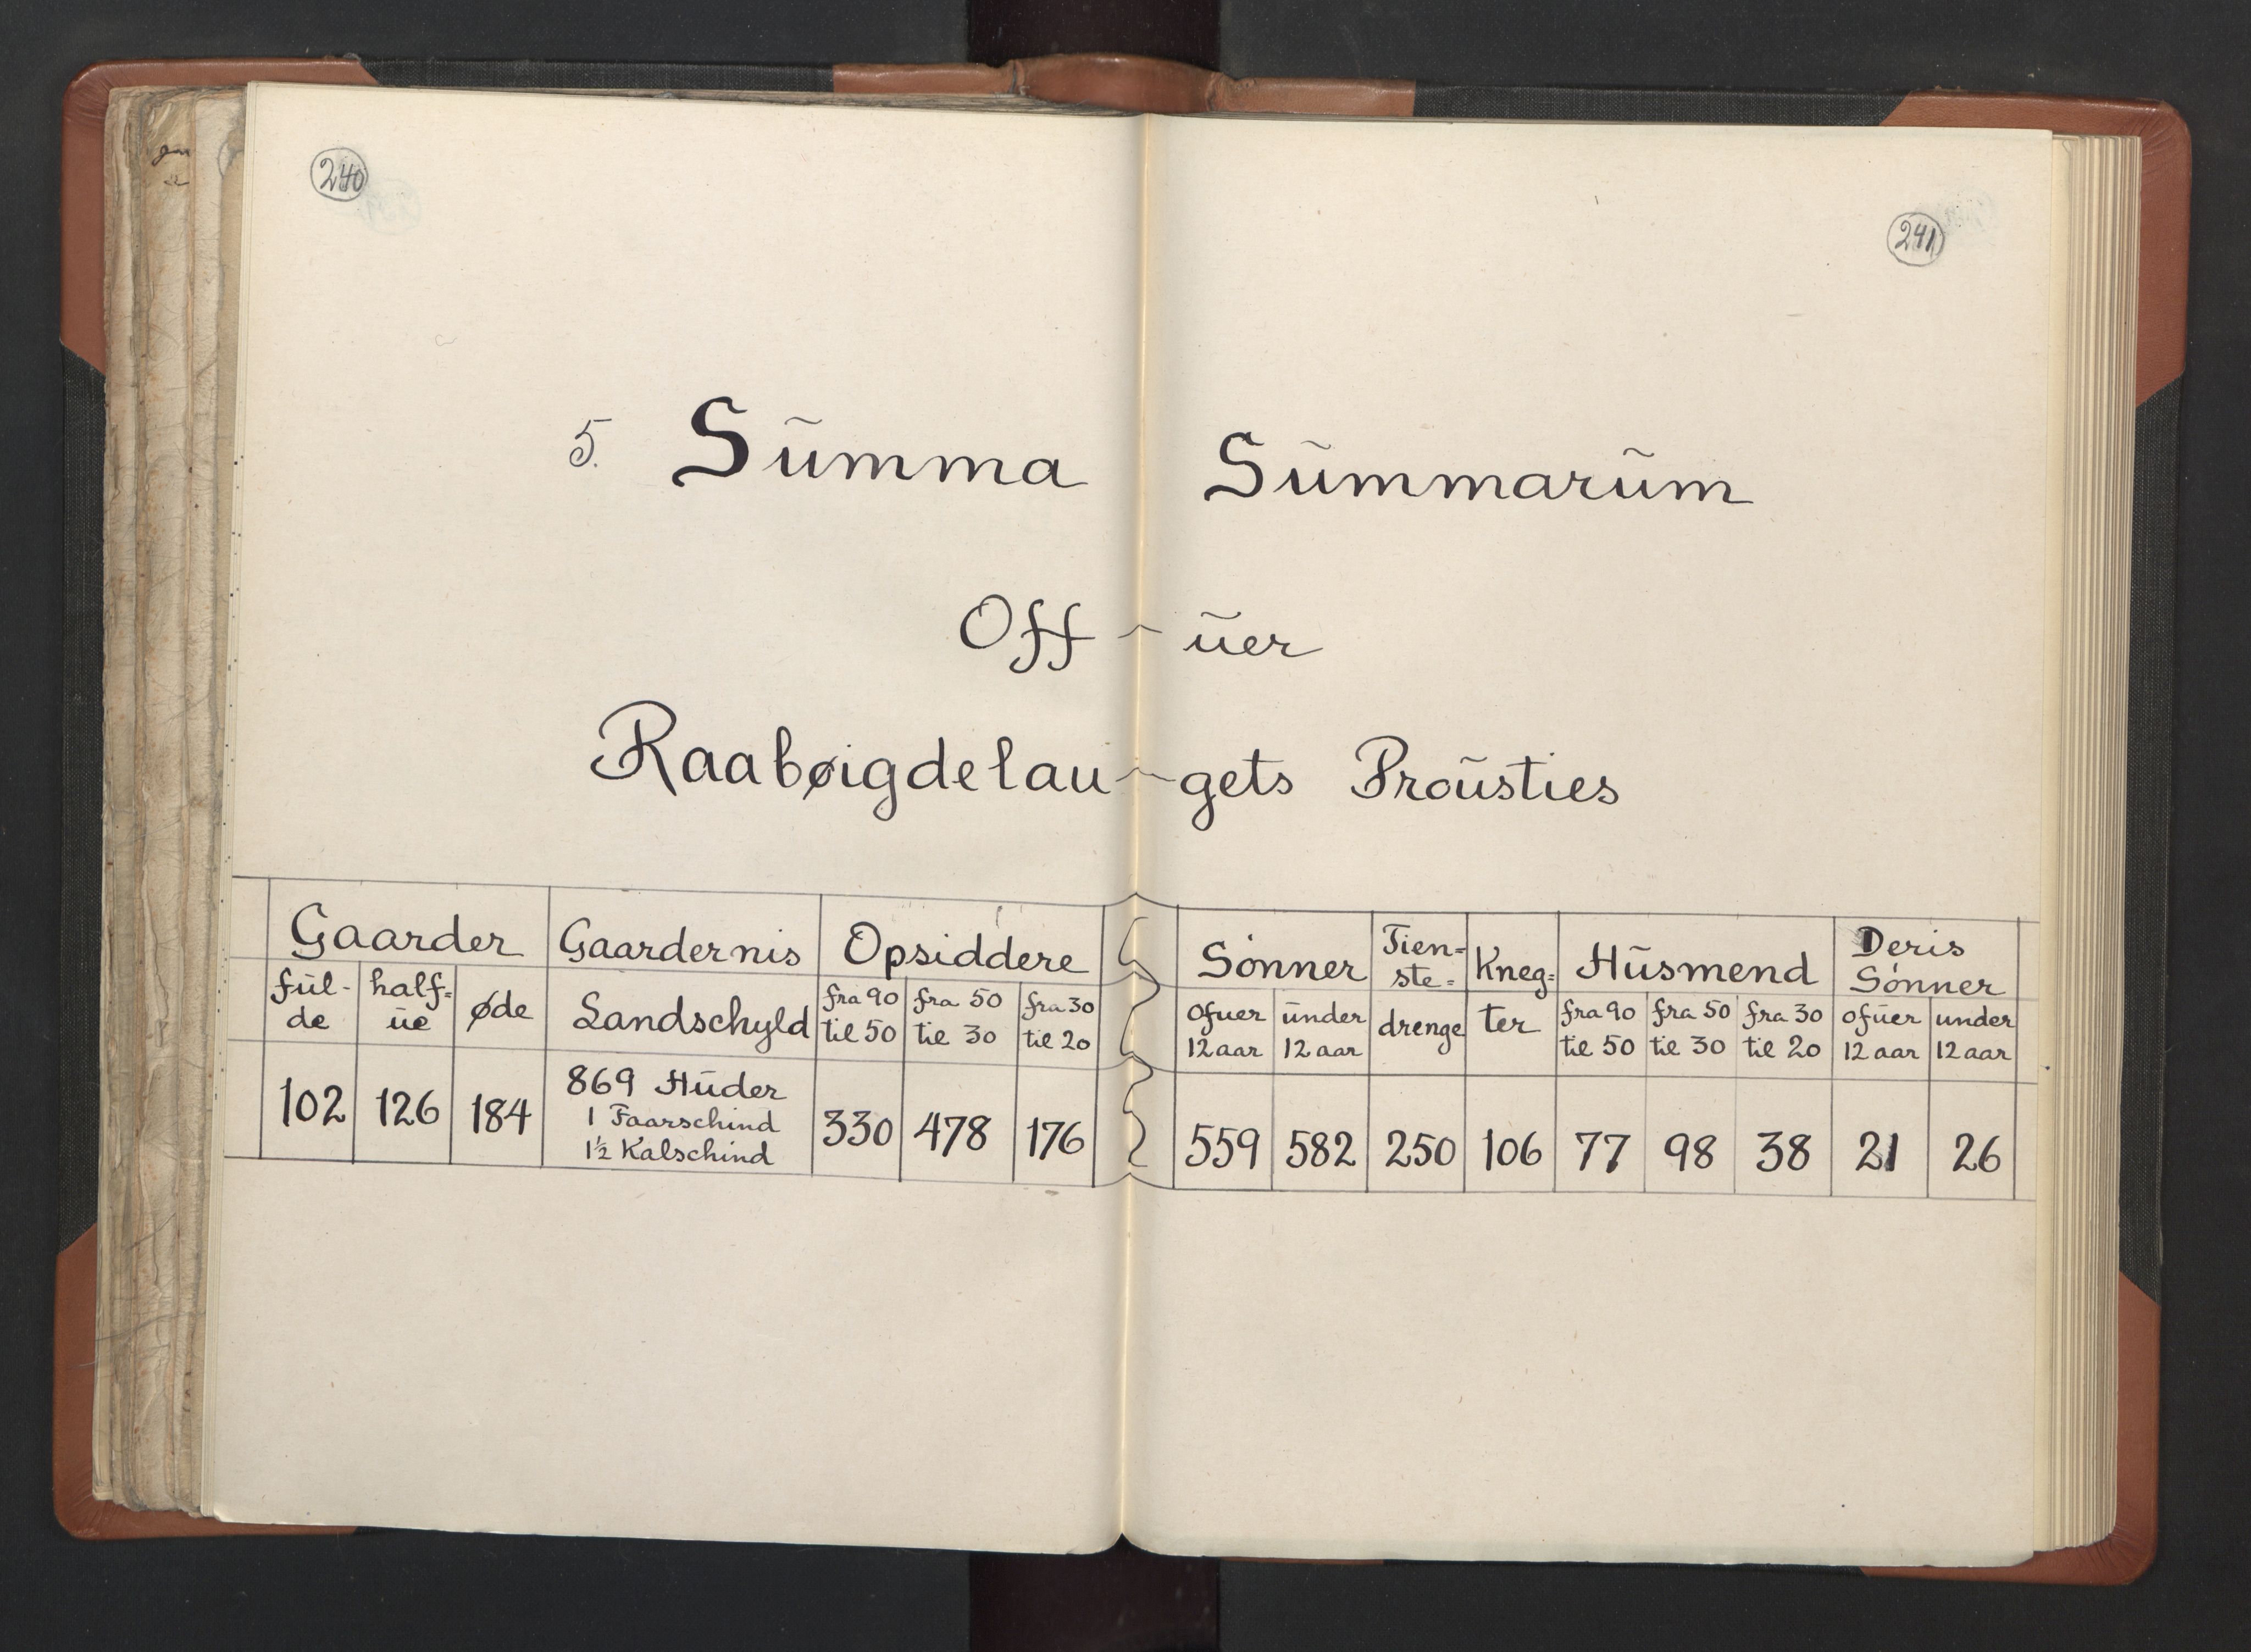 240
241
5. Sūmma Sūmmarūm
Off - ūer
Raabøigdelau - gets Proūsties
Gaarder Gaardernis Opsiddere Sønner Tien= Kneg= Hūsmend Deris
ste= Sønner
fūl- half= øde Landschyld fra 90 fra 50 fra 30 ofuer ūnder drenge ter fra 90 fra 50 fra 30 ofūer under
de ūe til 50 til 30 til 20 12 aar 12 aar til 50 til 30 til 20 12 aar 12 aar
102 126 184 869 Hūder 330 478 176 559 582 250 106 77 98 38 21 26
1 Faarschind
1½ Kalschind